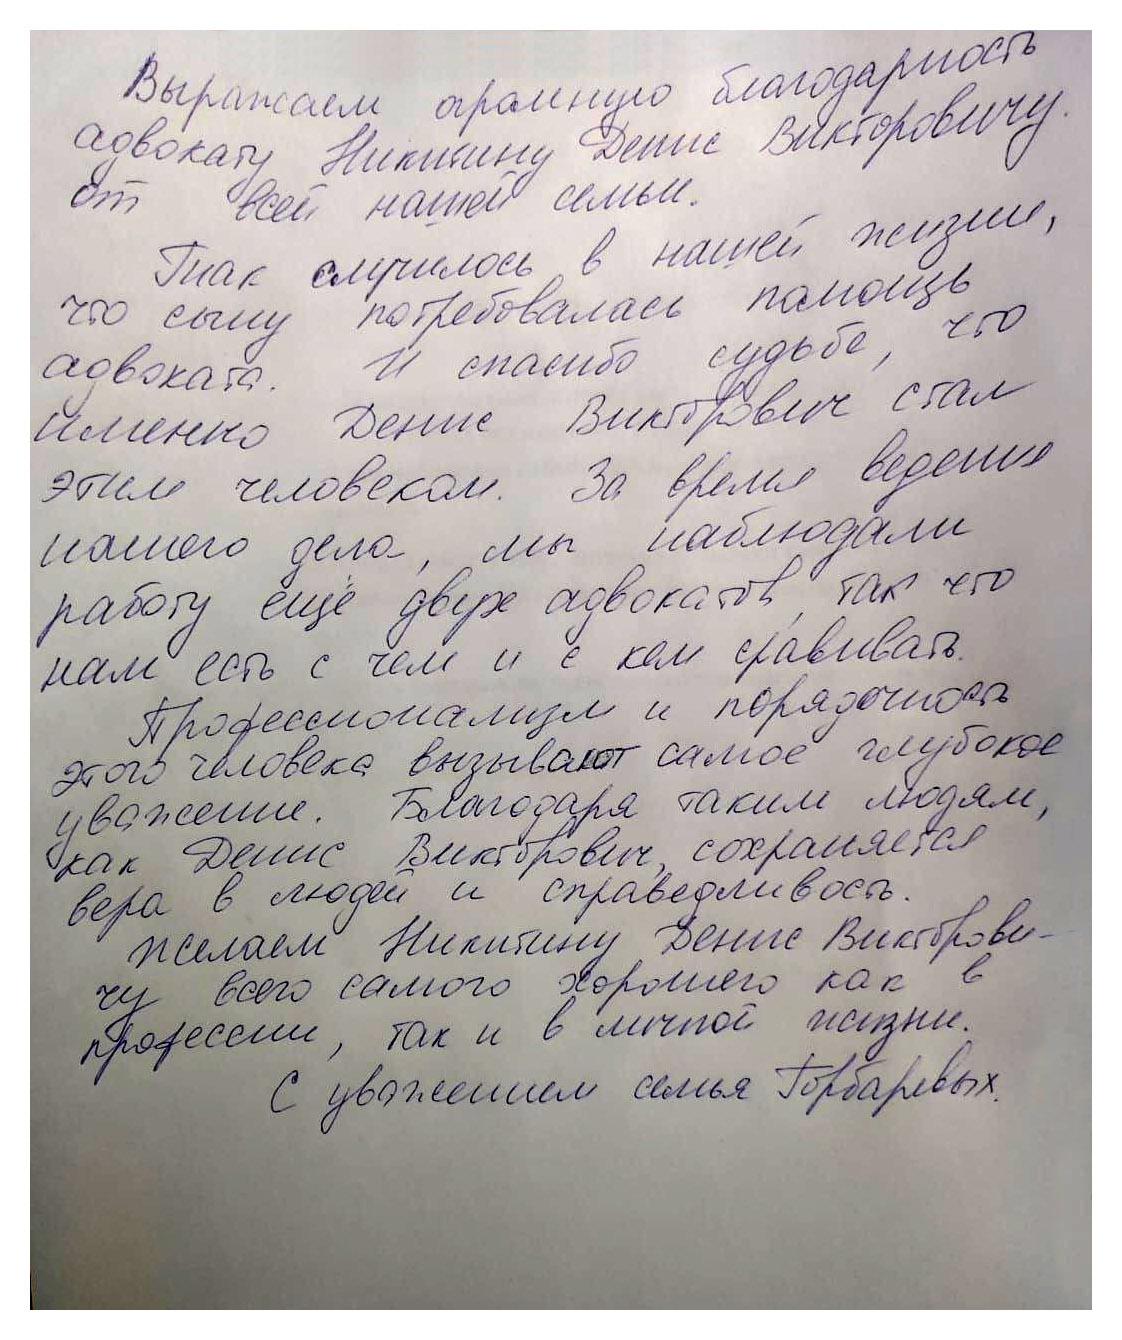 Выражаем огромную благодарность
адвокату Никитину Денис Викторовичу.
от всей нашей семьи.
Так случилось в нашей жизни,
что сыну потребовалась помощь
адвоката. И спасибо судьбе, что
именно Денис Викторович стал
этим человеком. За время ведения
нашего дела, мы наблюдали
работу ещё двух адвокатов, так что
нам есть с чем и с кем сравивать.
Профессионализм и порядочность
этого человека вызывают самое глубокое
уважение. Благодаря таким людям,
как Денис Викторович, сохраняется
вера в людей и справедливость.
Желаем Никитину Денис Викторови-
чу всего самого хорошего как в
профессии, так и в личной жизни.
С уважением семья Горбаревых.